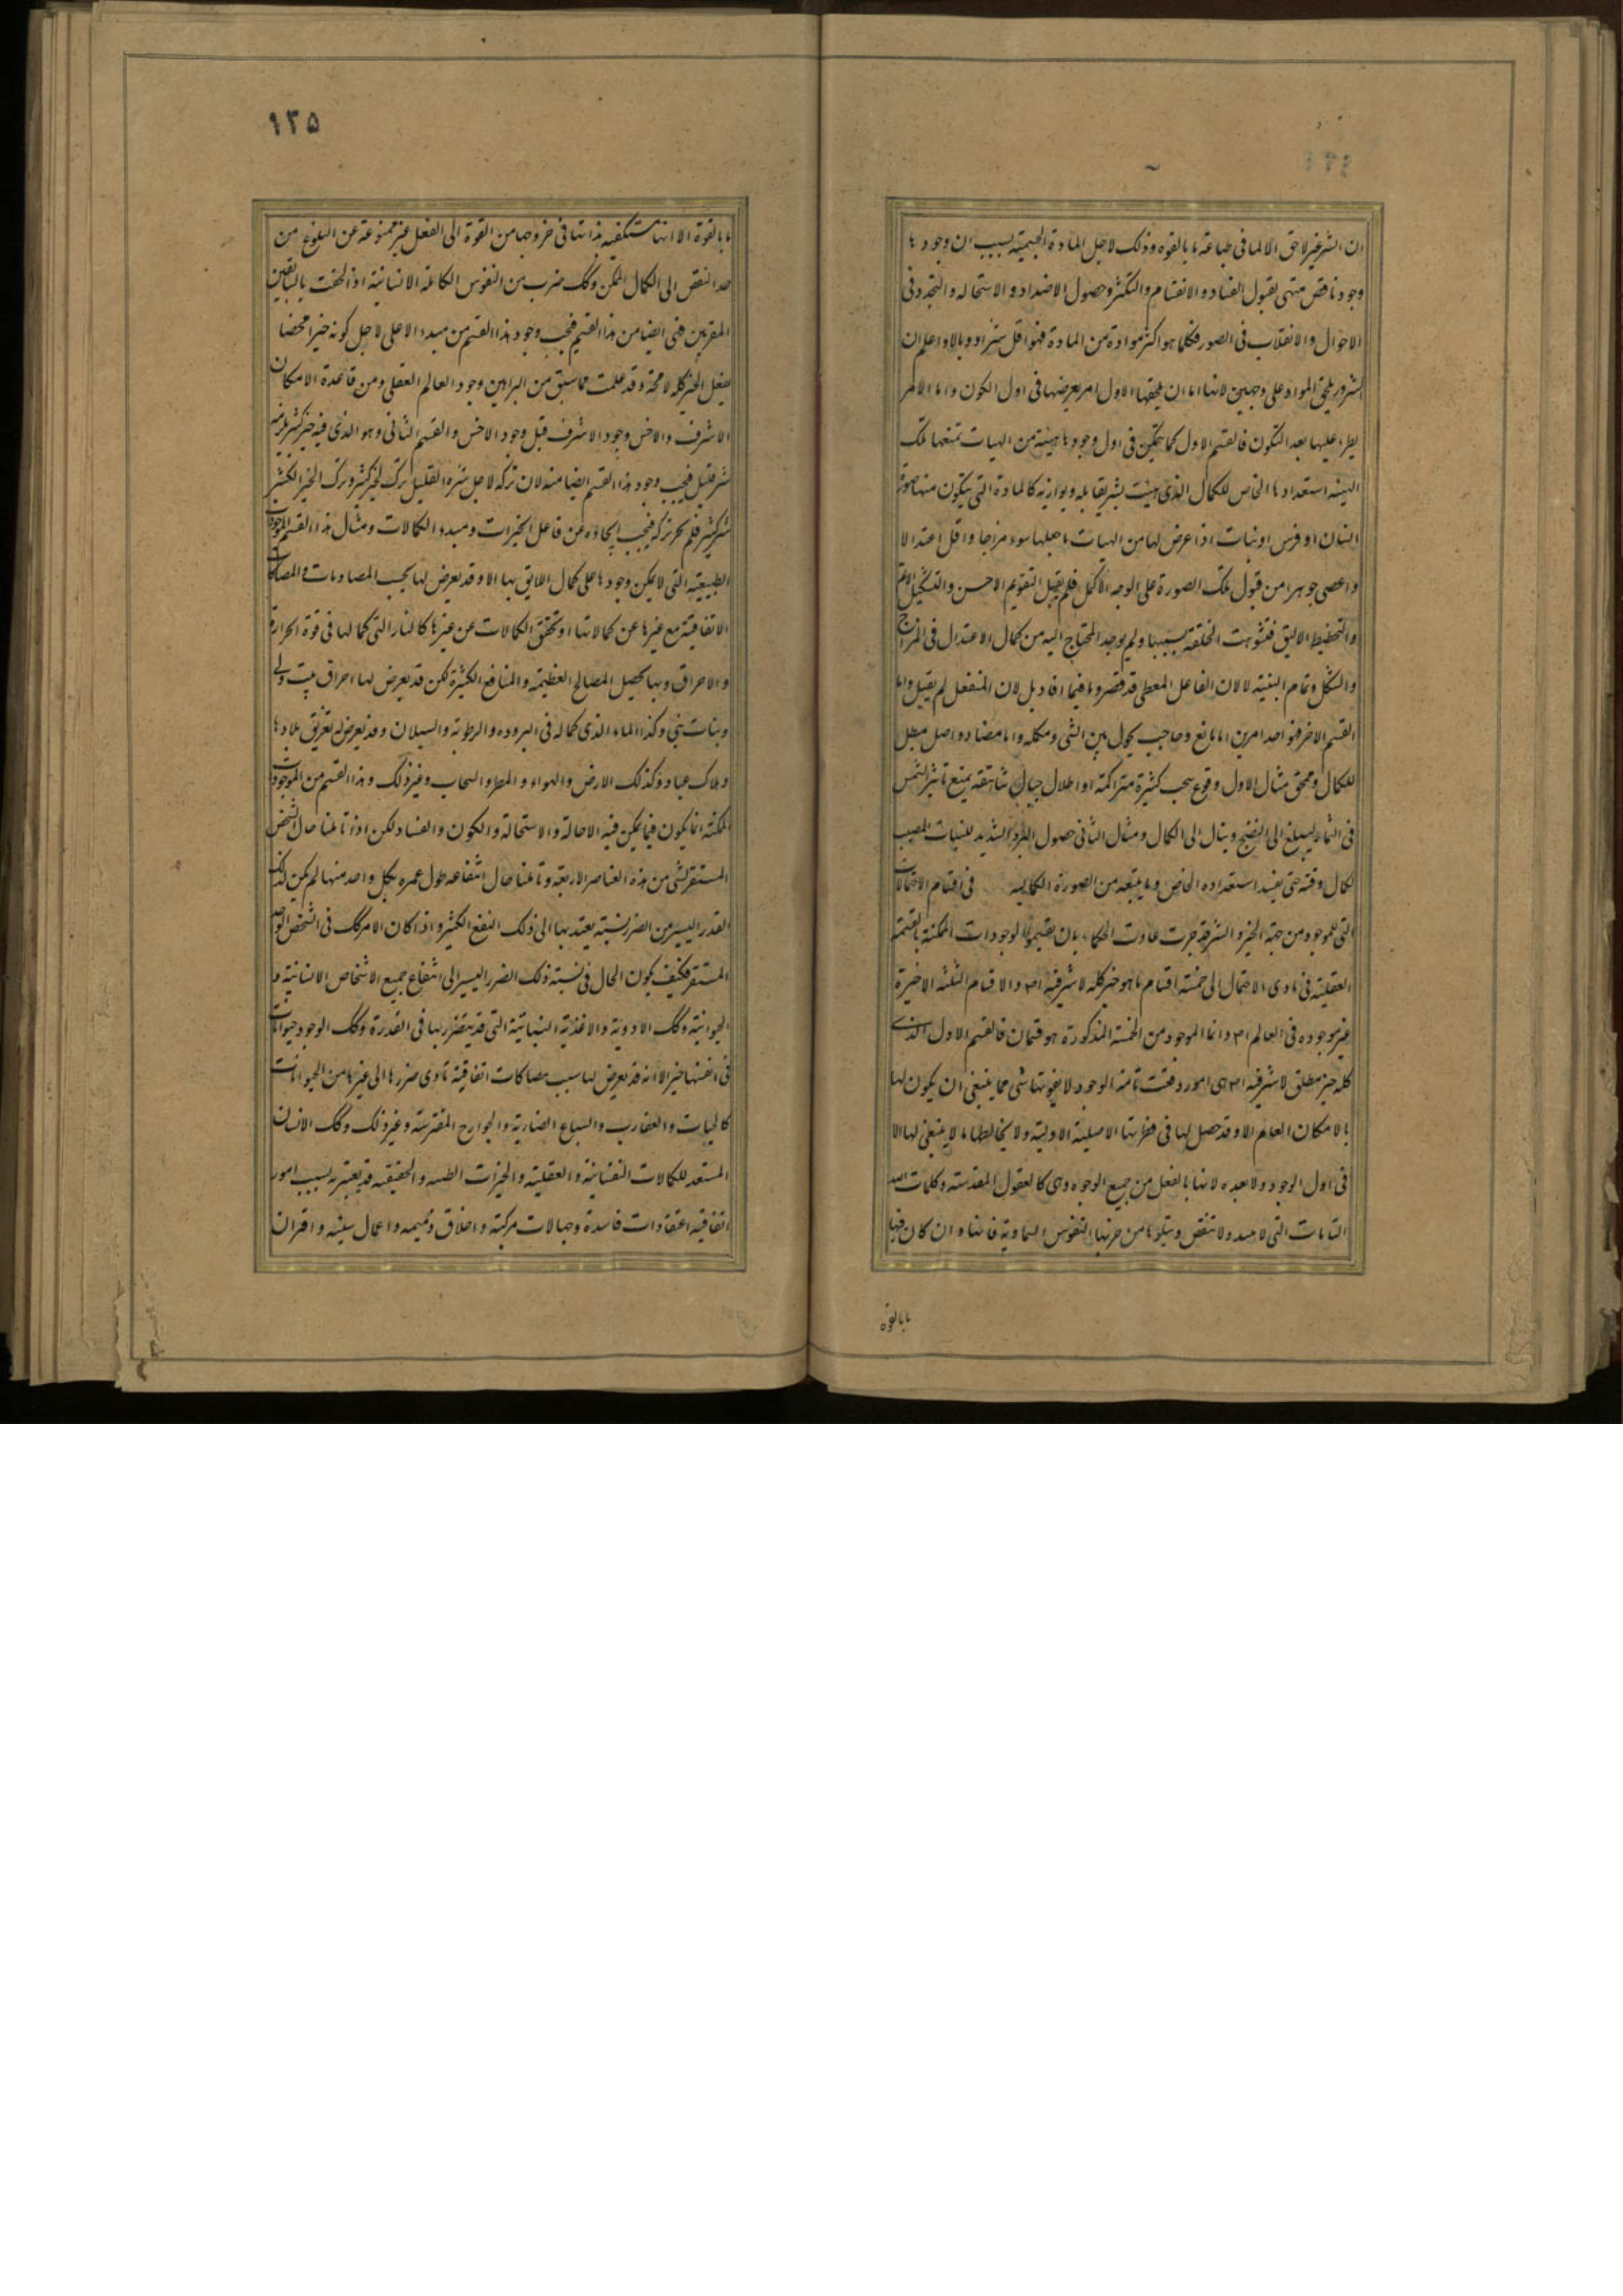 ان الشر غیر لاحق الا لما فی طباعه ما بالقوه وذلک لاجل المادة الجسمیة بسبب ان وجودها
وجود ناقص متهی لقبول الفساد والانقسام والتکثر وحصول الاضداد والاستحاله والتجدد فی
الاحوال والانقلاب فی الصور فکلما هو اکثر موادة من المادة فهو اقل شرا ووبالا واعلم ان
الشرور یلحق المواد علی وجهین لانها اما ان یلحقها الاول امر یعرضها فی اول الکون واما الامر
یطرء علیها بعد التکون فالقسم الاول کما یتمکن فی اول وجودها هیئة من الهیات تمنعها تلک
الهیئه استعدادها الخاص للکمال الذی منیت بشر یقابله ویوازیه کالمادة التی یتکون منها صورة
انسان او فرس او نبات اذا عرض لها من الهیات ما جعلها سوء مزاجا واقل اعتدالا
واعصی جوهرا من قبول تلک الصورة علی الوجه الاکمل فلم یقبل التقویم الاحسن والتشکیل الاتم
والتخطیط الالیق فتشوهت الخلقة بسببها ولم یوجد المحتاج الیه من کمال الاعتدال فی المزاج
والشکل وتمام البنیة لا لان الفاعل المعطی قد قصر وما فیما افاد بل لان المنفعل لم یقبل واما
القسم الاخر فهو احد امرین اما مانع وحاجب یحول بین الشی ومکمله واما مضاد واصل مبطل
للکمال وممحق مثال الاول وقوع سحب کثیرة متراکمة او اظلال جبال شاهقة یمنع تاثیر الشمس
فی الثمار لیبلغ الی النضج وینال الی الکمال ومثال الثانی حصول البرد الشدید للنبات المصیب
لکمال وقته حتی یفسد استعداده الخاص وما یتبعه من الصورة الکمالیه فی اقسام الاحتمالات
التی للموجود من جهة الخیر والشر قد جرت عادت الحکماء بان یقسموا الموجودات الممکنة بالقسمة
العقلیة فی بادی الاحتمال الی خمسة اقسام ما هو خیر کله لا شر فیه اصلا والاقسام الثلثه الاخیرة
غیر موجوده فی العالم اصلا وانما الموجود من الخمسة المذکورة هو قسمان فالقسم الاول الذی
کله خیر مطلق لا شر فیه اصلا هی امور وقعت تامة الوجود لا یفوتها شی مما ینبغی ان یکون لها
بالامکان العام الا وقد حصل لها فی فطرتها الاصلیة الاولیة ولا یخالطها ما لا ینبغی لها الا
فی اول الوجود ولا بعده لانها بالفعل من جمیع الوجوه وهی کالعقول المقدسة وکلمات الله
التامات التی لا تبید ولا تنقص ویتلوها من ضربها النفوس السماویة فانها وان کان فیها
ما بالقوه
۱۳۵
ما بالقوة الا انها مستکفیه بذاتها فی خروجها من القوة الی الفعل غیر ممنوعة عن البلوغ من
حد النقص الی الکمال الممکن وکک ضرب من النفوس الکاملة الانسانیة اذا لحقت بالسابقین
المقربین فهی ایضا من هذا القسم فیجب وجود هذا القسم من مبدء الاعلی لاجل کونه خیرا محضا
یفعل الخیر کله لا محة وقد علمت مما سبق من البراهین وجود العالم العقلی ومن قاعدة الامکان
الاشرف والاخس وجود الاشرف قبل وجود الاخس والقسم الثانی وهو الذی فیه خیر کثیر یلزمه
شر قلیل فیجب وجود هذا القسم ایضا منه لان ترکه لاجل شره القلیل ترک لخیر کثیر وترک الخیر الکثیر
شر کثیر فلم یجز ترکه فیجب ایجاده عن فاعل الخیرات ومبدء الکمالات ومثال هذا القسم الموجودات
الطبیعیة التی لا یمکن وجودها علی کمال اللایق بها الا وقد یعرض لها بحسب المصادمات والمصاکات
الاتفاقیة منع غیرها عن کمالاتها او تحقق الکمالات عن غیرها کالنار التی کمالها فی قوة الحرارة
والاحراق وبها یحصل المصالح العظیمة والمنافع الکثیرة لکن قد یعرض لها احراق بیت ولی
وثیاب نبی وکذا الماء الذی کماله فی البروده والرطوبة والسیلان وقد یعرض له تغریق بلادها
وهلاک عباد وکذلک الارض والهواء والمطر والسحاب وغیر ذلک وهذا القسم من الموجودات
الممکنة انما یکون فیما یمکن فیه الاحالة والاستحالة والکون والفساد لکن اذا تاملنا حال الشخص
المستقر لشی من هذه العناصر الاربعة وتاملنا حال انتفاعه طول عمره بکل واحد منها لم یکن لذلک
القدر الیسیر من الضرر نسبة یعتد بها الی ذلک النفع الکثیر واذا کان الامر کک فی الشخص الواحد
المستقر فکیف یکون الحال فی نسبة ذلک الضرر الیسیر الی انتفاع جمیع الاشخاص الانسانیة و
الحیوانیة وکک الادویة والاغذیة النباتیة التی قد یتضرر بها فی القدرة وکک الوجود حیوانات
فی انفسها خیر الا انه قد یعرض لها بسبب مصاکات اتفاقیة تادی ضررها الی غیرها من الحیوانات
کالحیات والعقارب والسباع الضاریة والجوارح المفترسة وغیر ذلک وکک الانسان
المستعد للکمالات النفسانیة والعقلیة والخیرات الظنیه والحقیقیه قد یعتریه بسبب امور
اتفاقیه اعتقادات فاسدة وجهالات مرکبة واخلاق ذمیمه واعمال سیئه واقتران